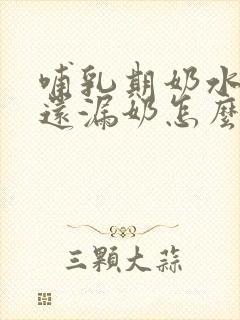 哺乳期奶水
還漏奶怎麼
三顆大蒜